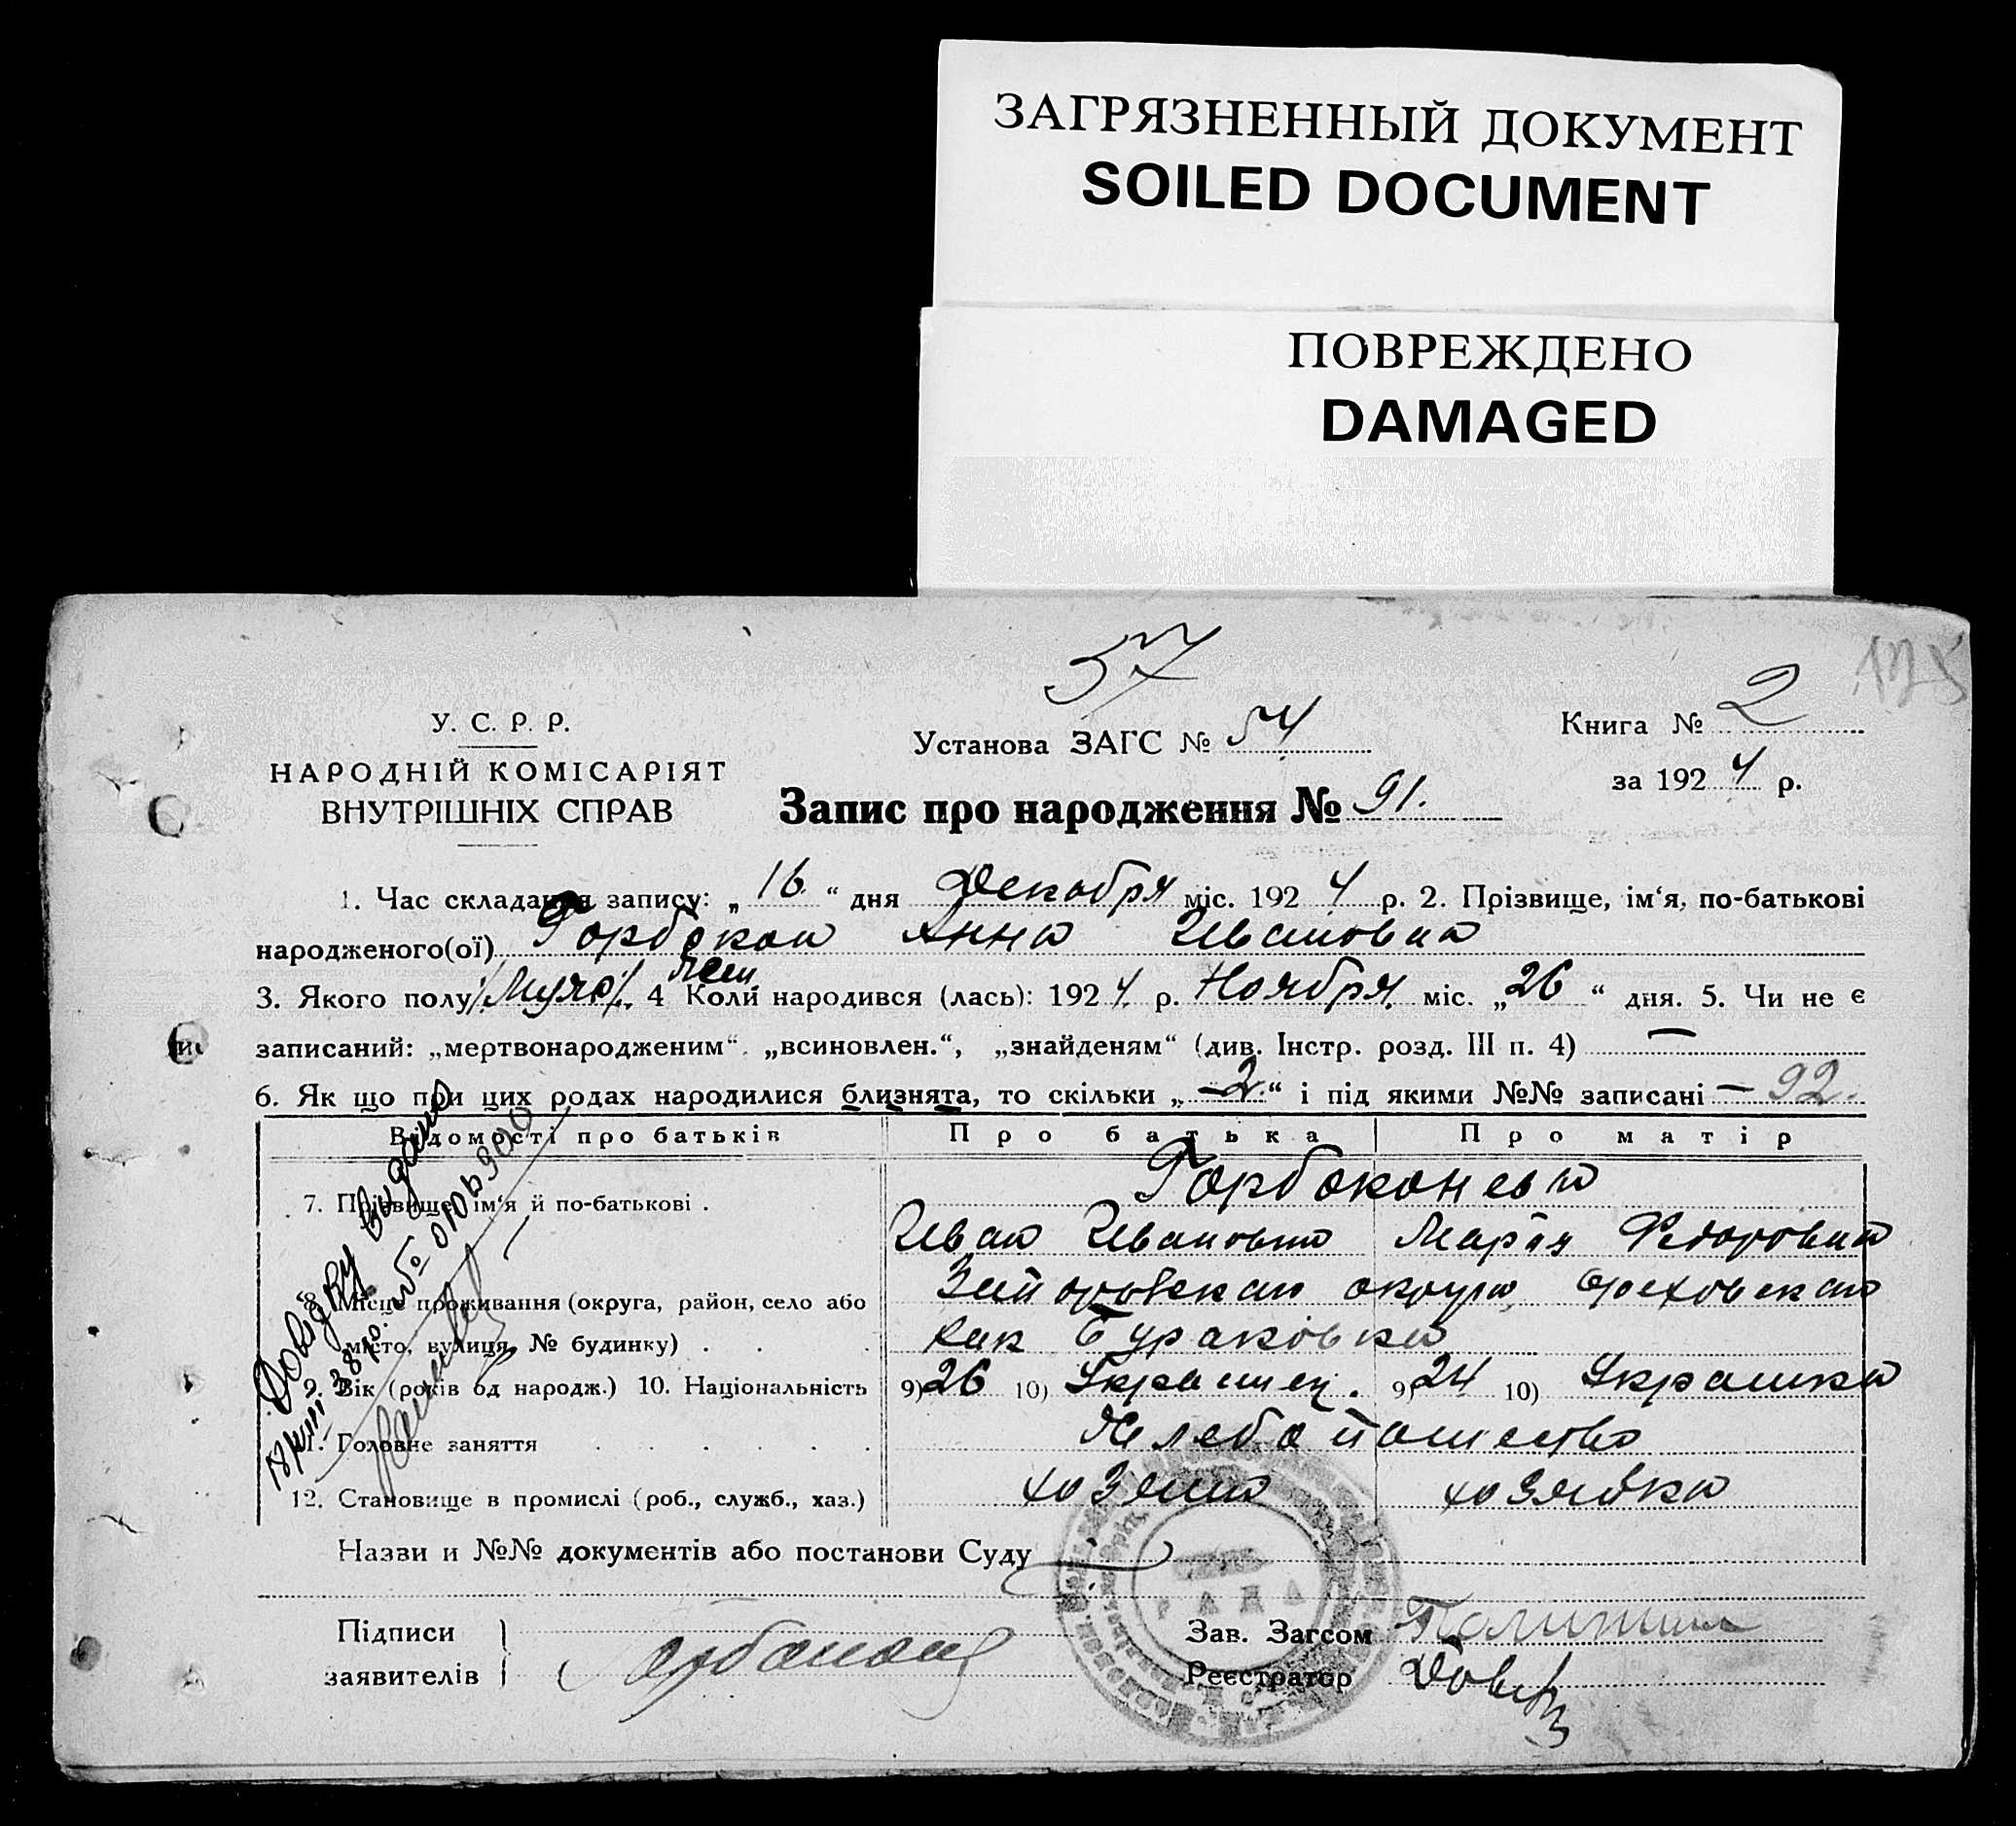 ЗАГРЯЗНЕННЫЙ ДОКУМЕНТ
SOILED DOCUMENT
ПОВРЕЖДЕНО
DAMAGED
57
У. С. Р. Р.
НАРОДНІЙ КОМІСАРІЯТ
ВНУТРІШНІХ СПРАВ
Установа ЗАГС № 54
Запис про народження № 91.
Книга № 2
за 1924 р.
1. Час складання запису: „16“ дня Декабря міс. 1924 р. 2. Прізвище, ім‘я, по-батькові
народженого(ої) Горбокон Анна Ивановна
3. Якого полу Муж. жен. 4 Коли народився (лась): 1924 р. Ноября міс. „26“ дня. 5. Чи не є
записаний: „мертвонародженим“, „всиновлен.“, „знайденям“ (див. Інстр. розд. III п. 4) —
6. Як що при цих родах народилися близнята, то скільки „—2“ і під якими №№ записані — 92.
Відомості про батьків
Про батька
Про матір
7. Прізвище, ім‘я й по-батькові .
Горбоконева
Иван Иванович Мария Федоровна
8. Місце проживання (округа, район, село або
місто, вулиця, № будинку) . . .
округа, Ореховская
Бураковка
9. Вік (років од народж.) 10. Національність
9) 26 10) Украинец. 9) 24 10) Украинка
11. Головне заняття . . . . . .
Хлебопашество
12. Становище в промислі (роб., служб., хаз.)
хозяин хозяйка
Назви и №№ документів або постанови Суду
Підписи
заявителів
Зав. Загсом
Реєстратор
РАДА
Довідку видано